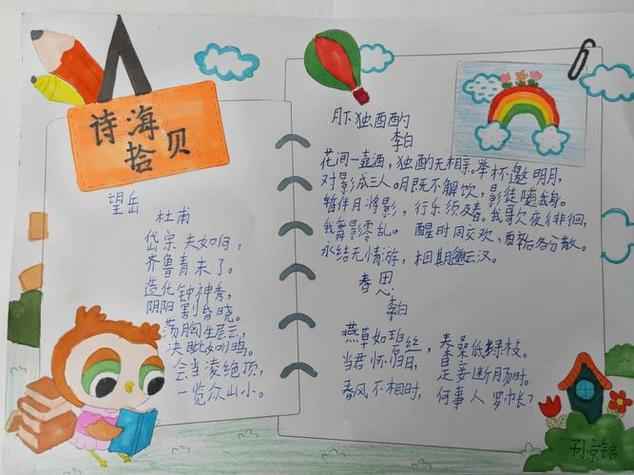 诗海
拾贝
望岳
杜甫
岱宗夫如何,
齐鲁青未了。
造化钟神秀,
阴阳割昏晓。
荡胸生层云,
决眦如归鸟。
会当凌绝顶,
一览众山小。
月下独酌
李白
花间一壶酒,独酌无相亲。举杯邀明月,
对影成三人。月既不解饮,影徒随我身。
暂伴月将影,行乐须及春。我歌月徘徊,
我舞影零乱。醒时同交欢,醉后各分散。
永结无情游,相期邈云汉。
春思
李白
燕草如碧丝,秦桑低绿枝。
当君怀归日,是妾断肠时。
春风不相时,何事人罗帏?